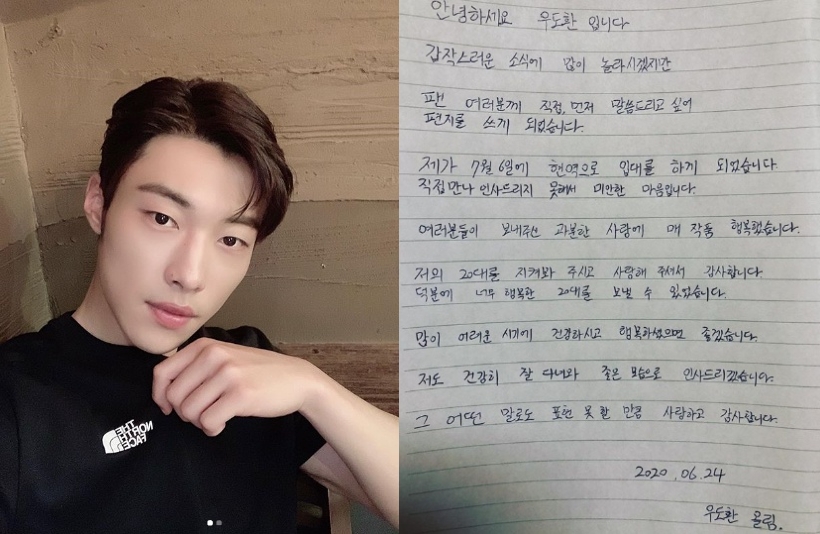 THE
NORTH
FACE
안녕하세요 우도환 입니다
갑작스러운 소식에 많이 놀라시겠지만
팬 여러분께 직접, 먼저 말씀드리고 싶어
편지를 쓰게 되었습니다.
제가 7월 6일에 현역으로 입대를 하게 되었습니다.
직접 만나 인사드리지 못해서 미안한 마음입니다.
여러분들이 보내주신 과분한 사랑에 매 작품 행복했습니다.
저의 20대를 지켜봐 주시고 사랑해 주셔서 감사합니다.
덕분에 너무 행복한 20대를 보낼 수 있었습니다.
많이 어려운 시기에 건강하시고 행복하셨으면 좋겠습니다.
저도 건강히 잘 다녀와 좋은 모습으로 인사드리겠습니다.
그 어떤 말로도 표현 못 할 만큼 사랑하고 감사합니다.
2020.06.24
우도환 올림.